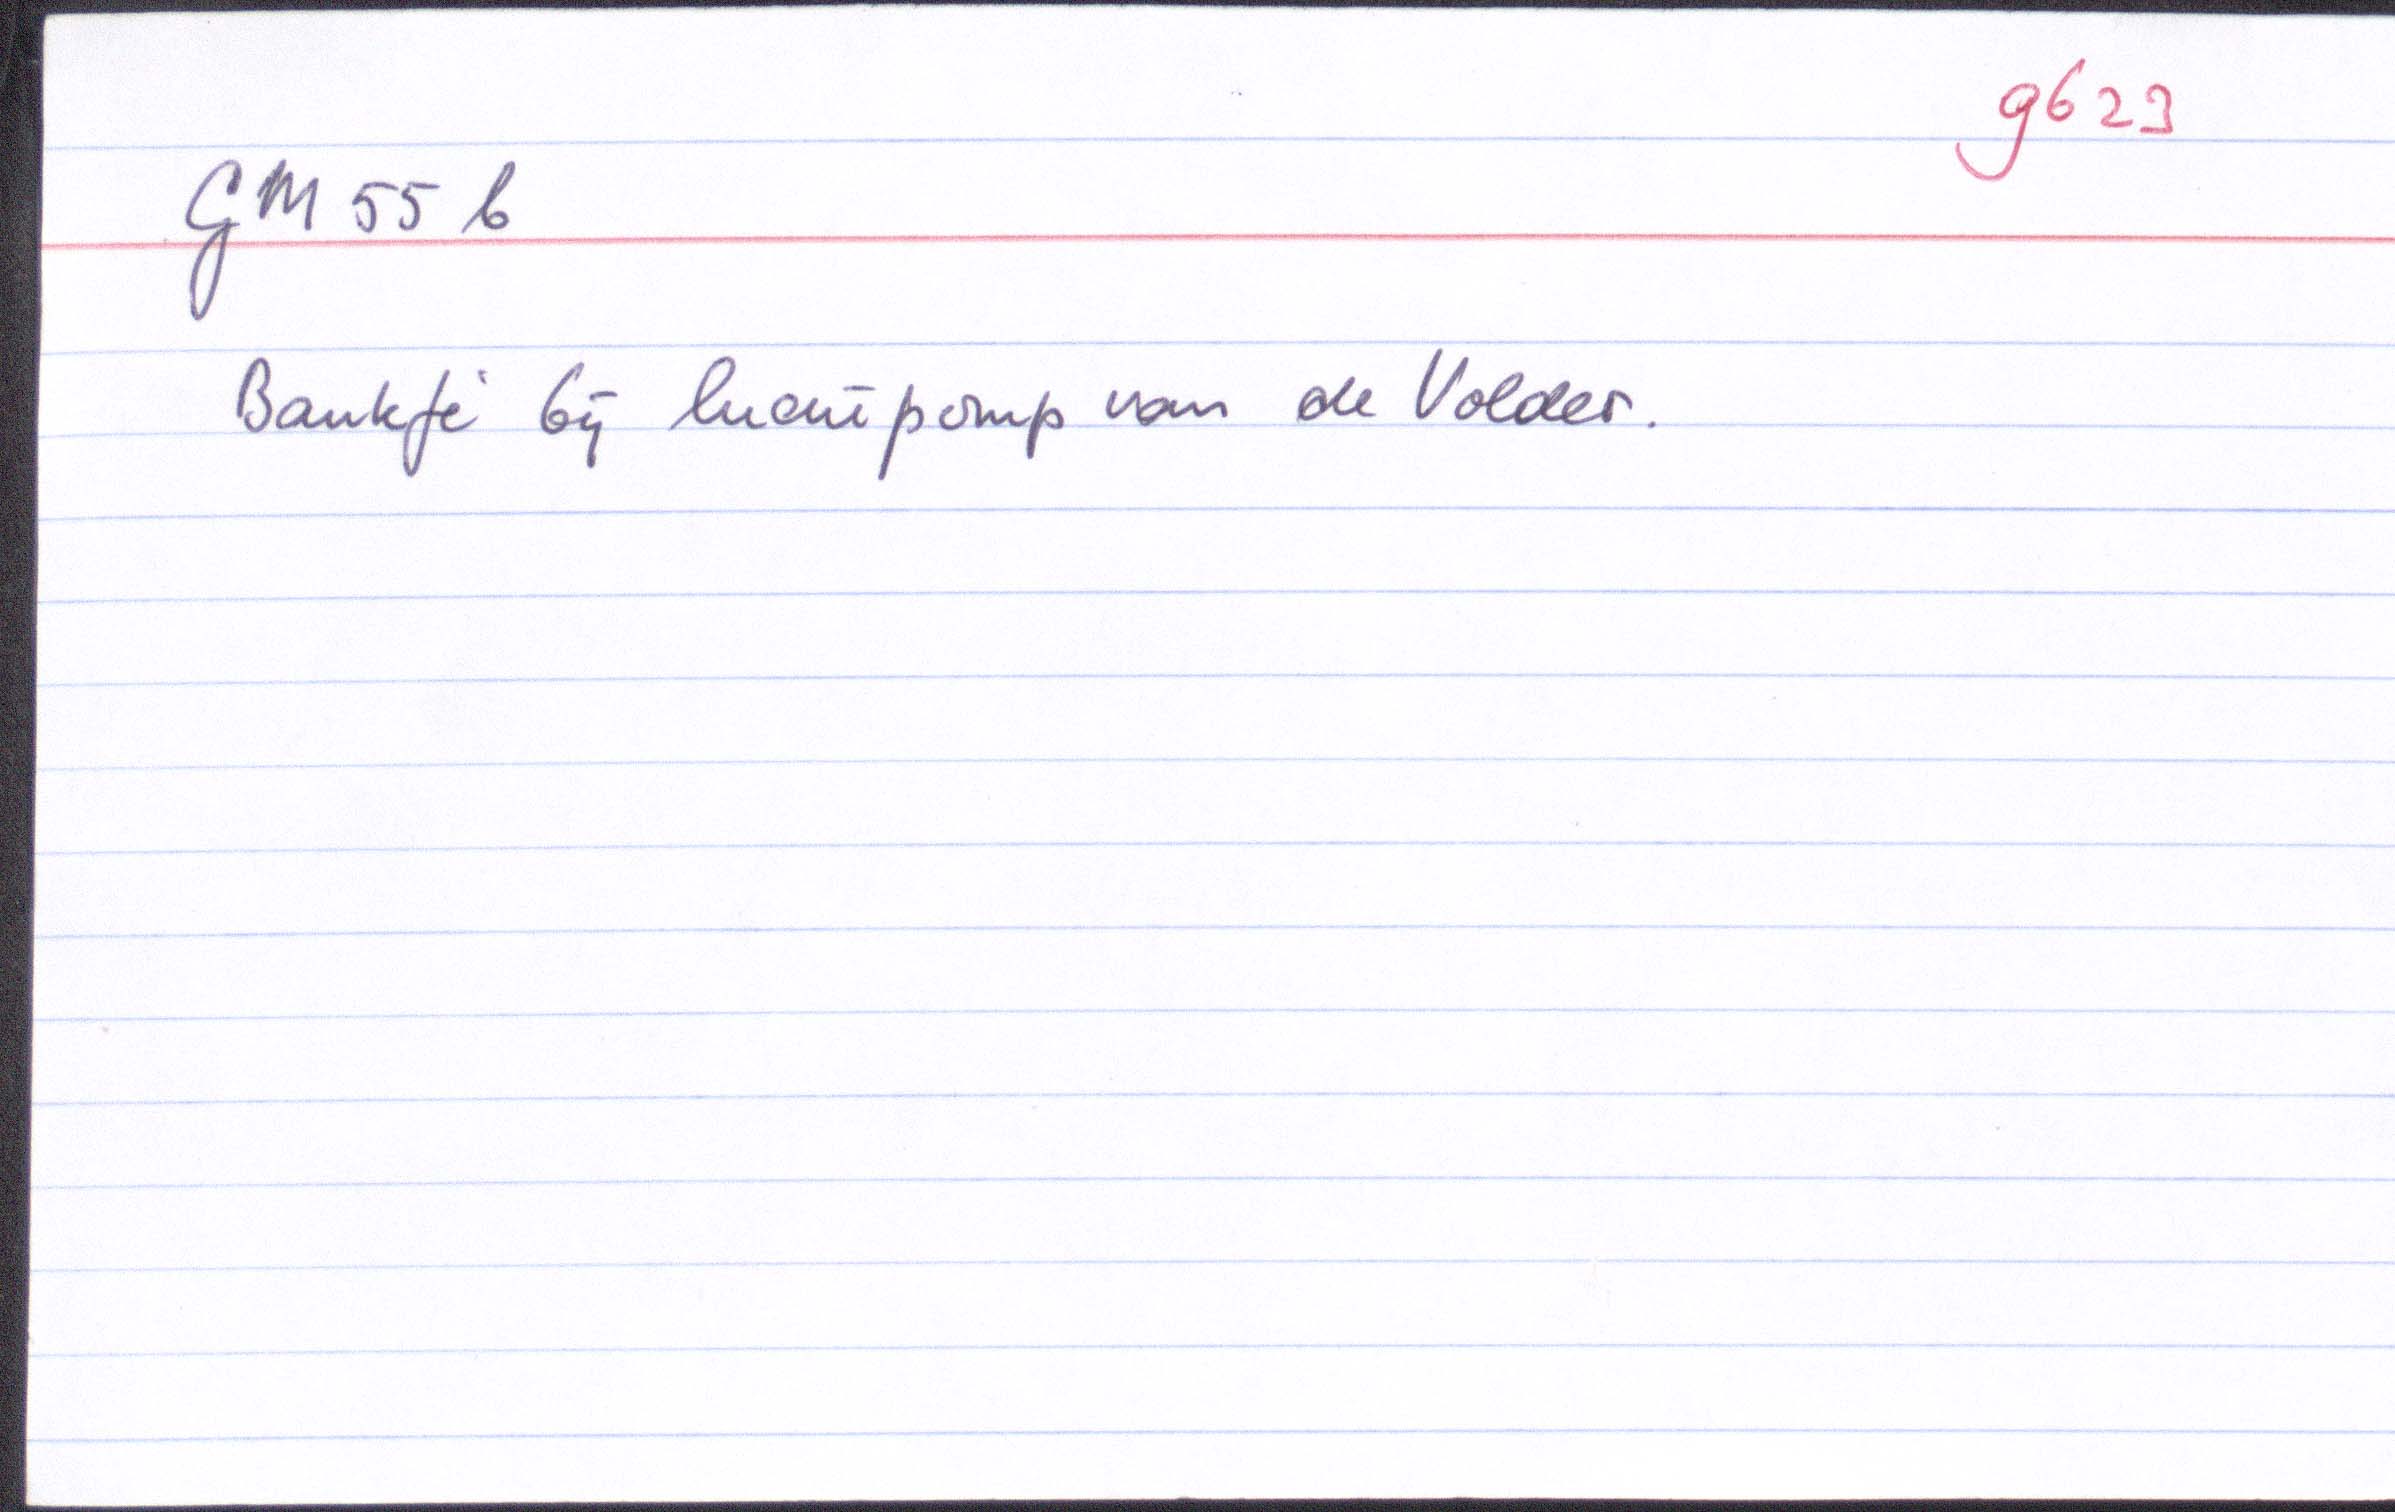 9623
GM 55 b
Bankje bij luchtpomp van de Volder.